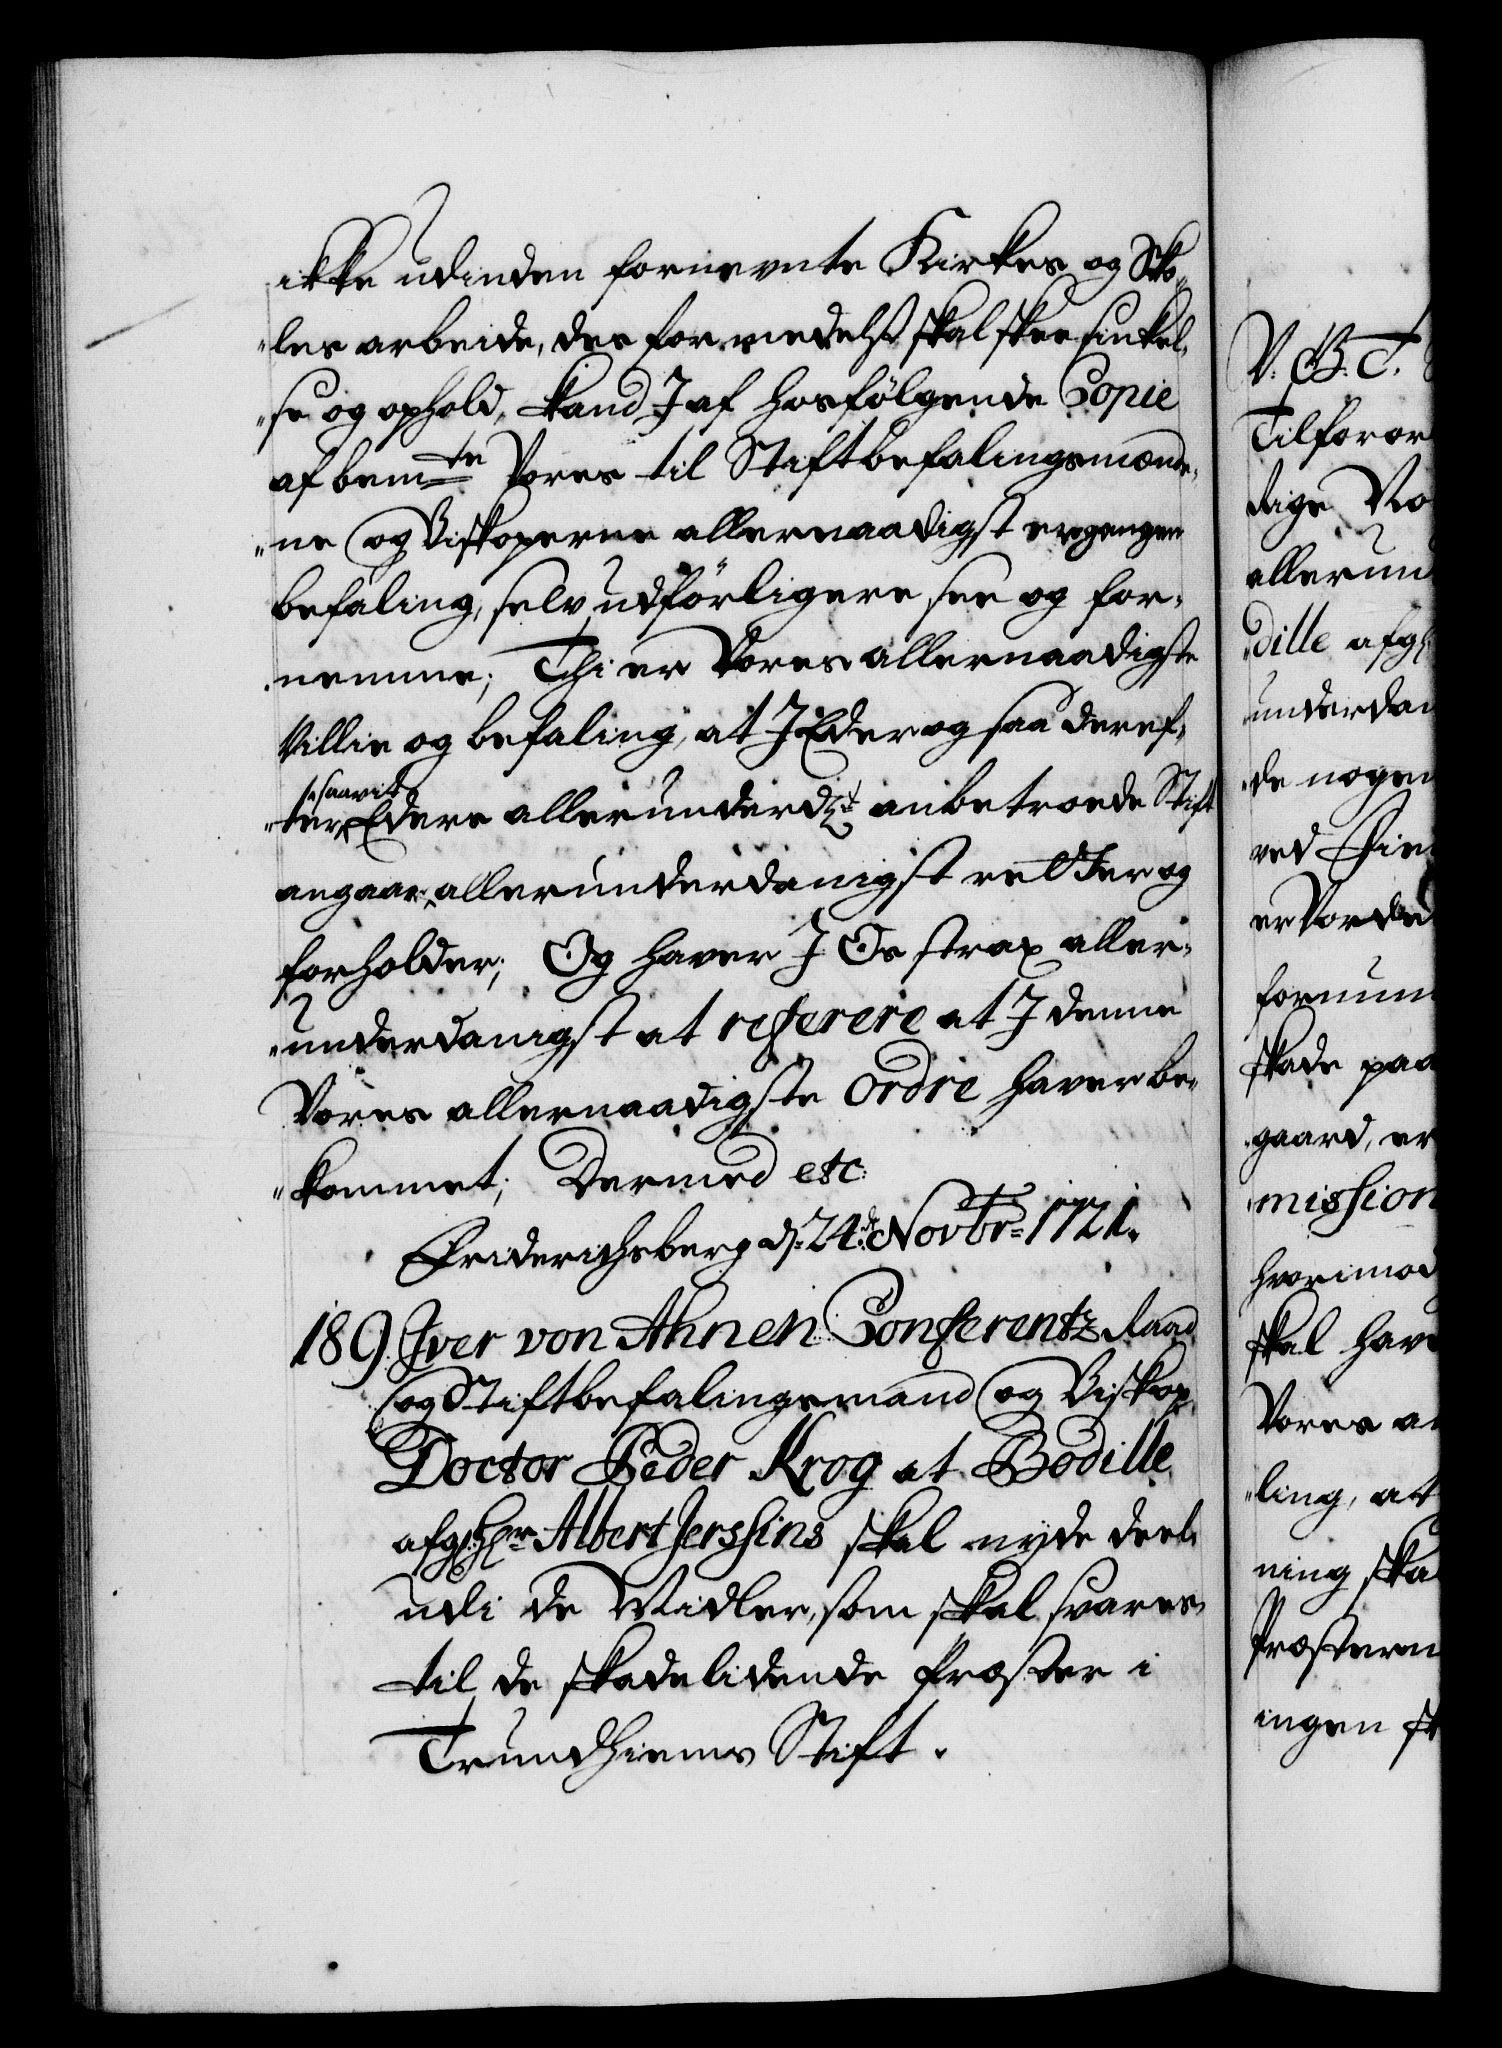 ikke udinden fornevnte Kirkes og Sko„
„les arbeide, des formedelst skal skee sinkel„
„se og ophold, kand I af hosfølgende Copie
af bemte Vores til Stiftbefalingsmænde„
„ne og Biskoperne allernaadigst ergangen
befaling, selv udførligere see og for„
„nemme; Thi er Vores allernaadigste
Villie og befaling, at I Eder og saa deref„
„ter, saavit Eders allerunderdgst anbetroede Stift
angaar, allerunderdanigst retter og
forholder; Og haver I Os strax aller„
„underdanigst at referere at I denne
Vores allernaadigste Ordre haver be„
„kommet; Dermed etc:
Friderichsberg d: 24de Novbr= 1721.
189. Iver von Ahnen Conferentz Raad
og Stiftbefalingsmand og Biskop
Doctor Peder Krog at Bodille
afg: Hr Albert Jersins skal nyde deel
udi de Midler, som skal svares
til de skadelidende Præster i
Trundhiems Stift.
V. G. T.
Tilforor
dige Vo
allerun
„dille afg
underdan
„de nogen
ved Fien
er Vorde
fornum
skade paa
„gaard, er
„mission
hvorimod
skal have
Vores al
„ling, at
ning ska
Præstern
ingen sk